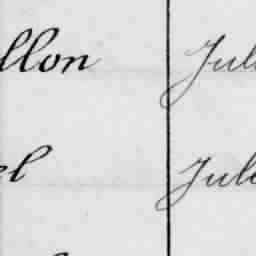 llon Jul
el Jul